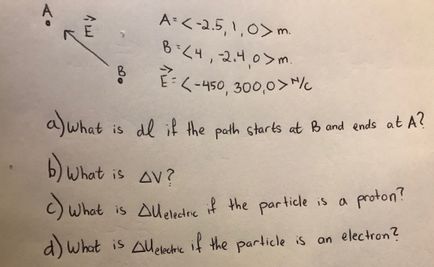 A
E⃗
B
A = <-2.5, 1, 0> m.
B = <4, -2.4, 0> m.
E⃗ = <-450, 300, 0> N/c
a) What is dl if the path starts at B and ends at A?
b) What is ΔV?
c) What is ΔUelectric if the particle is a proton?
d) What is ΔUelectric if the particle is an electron?